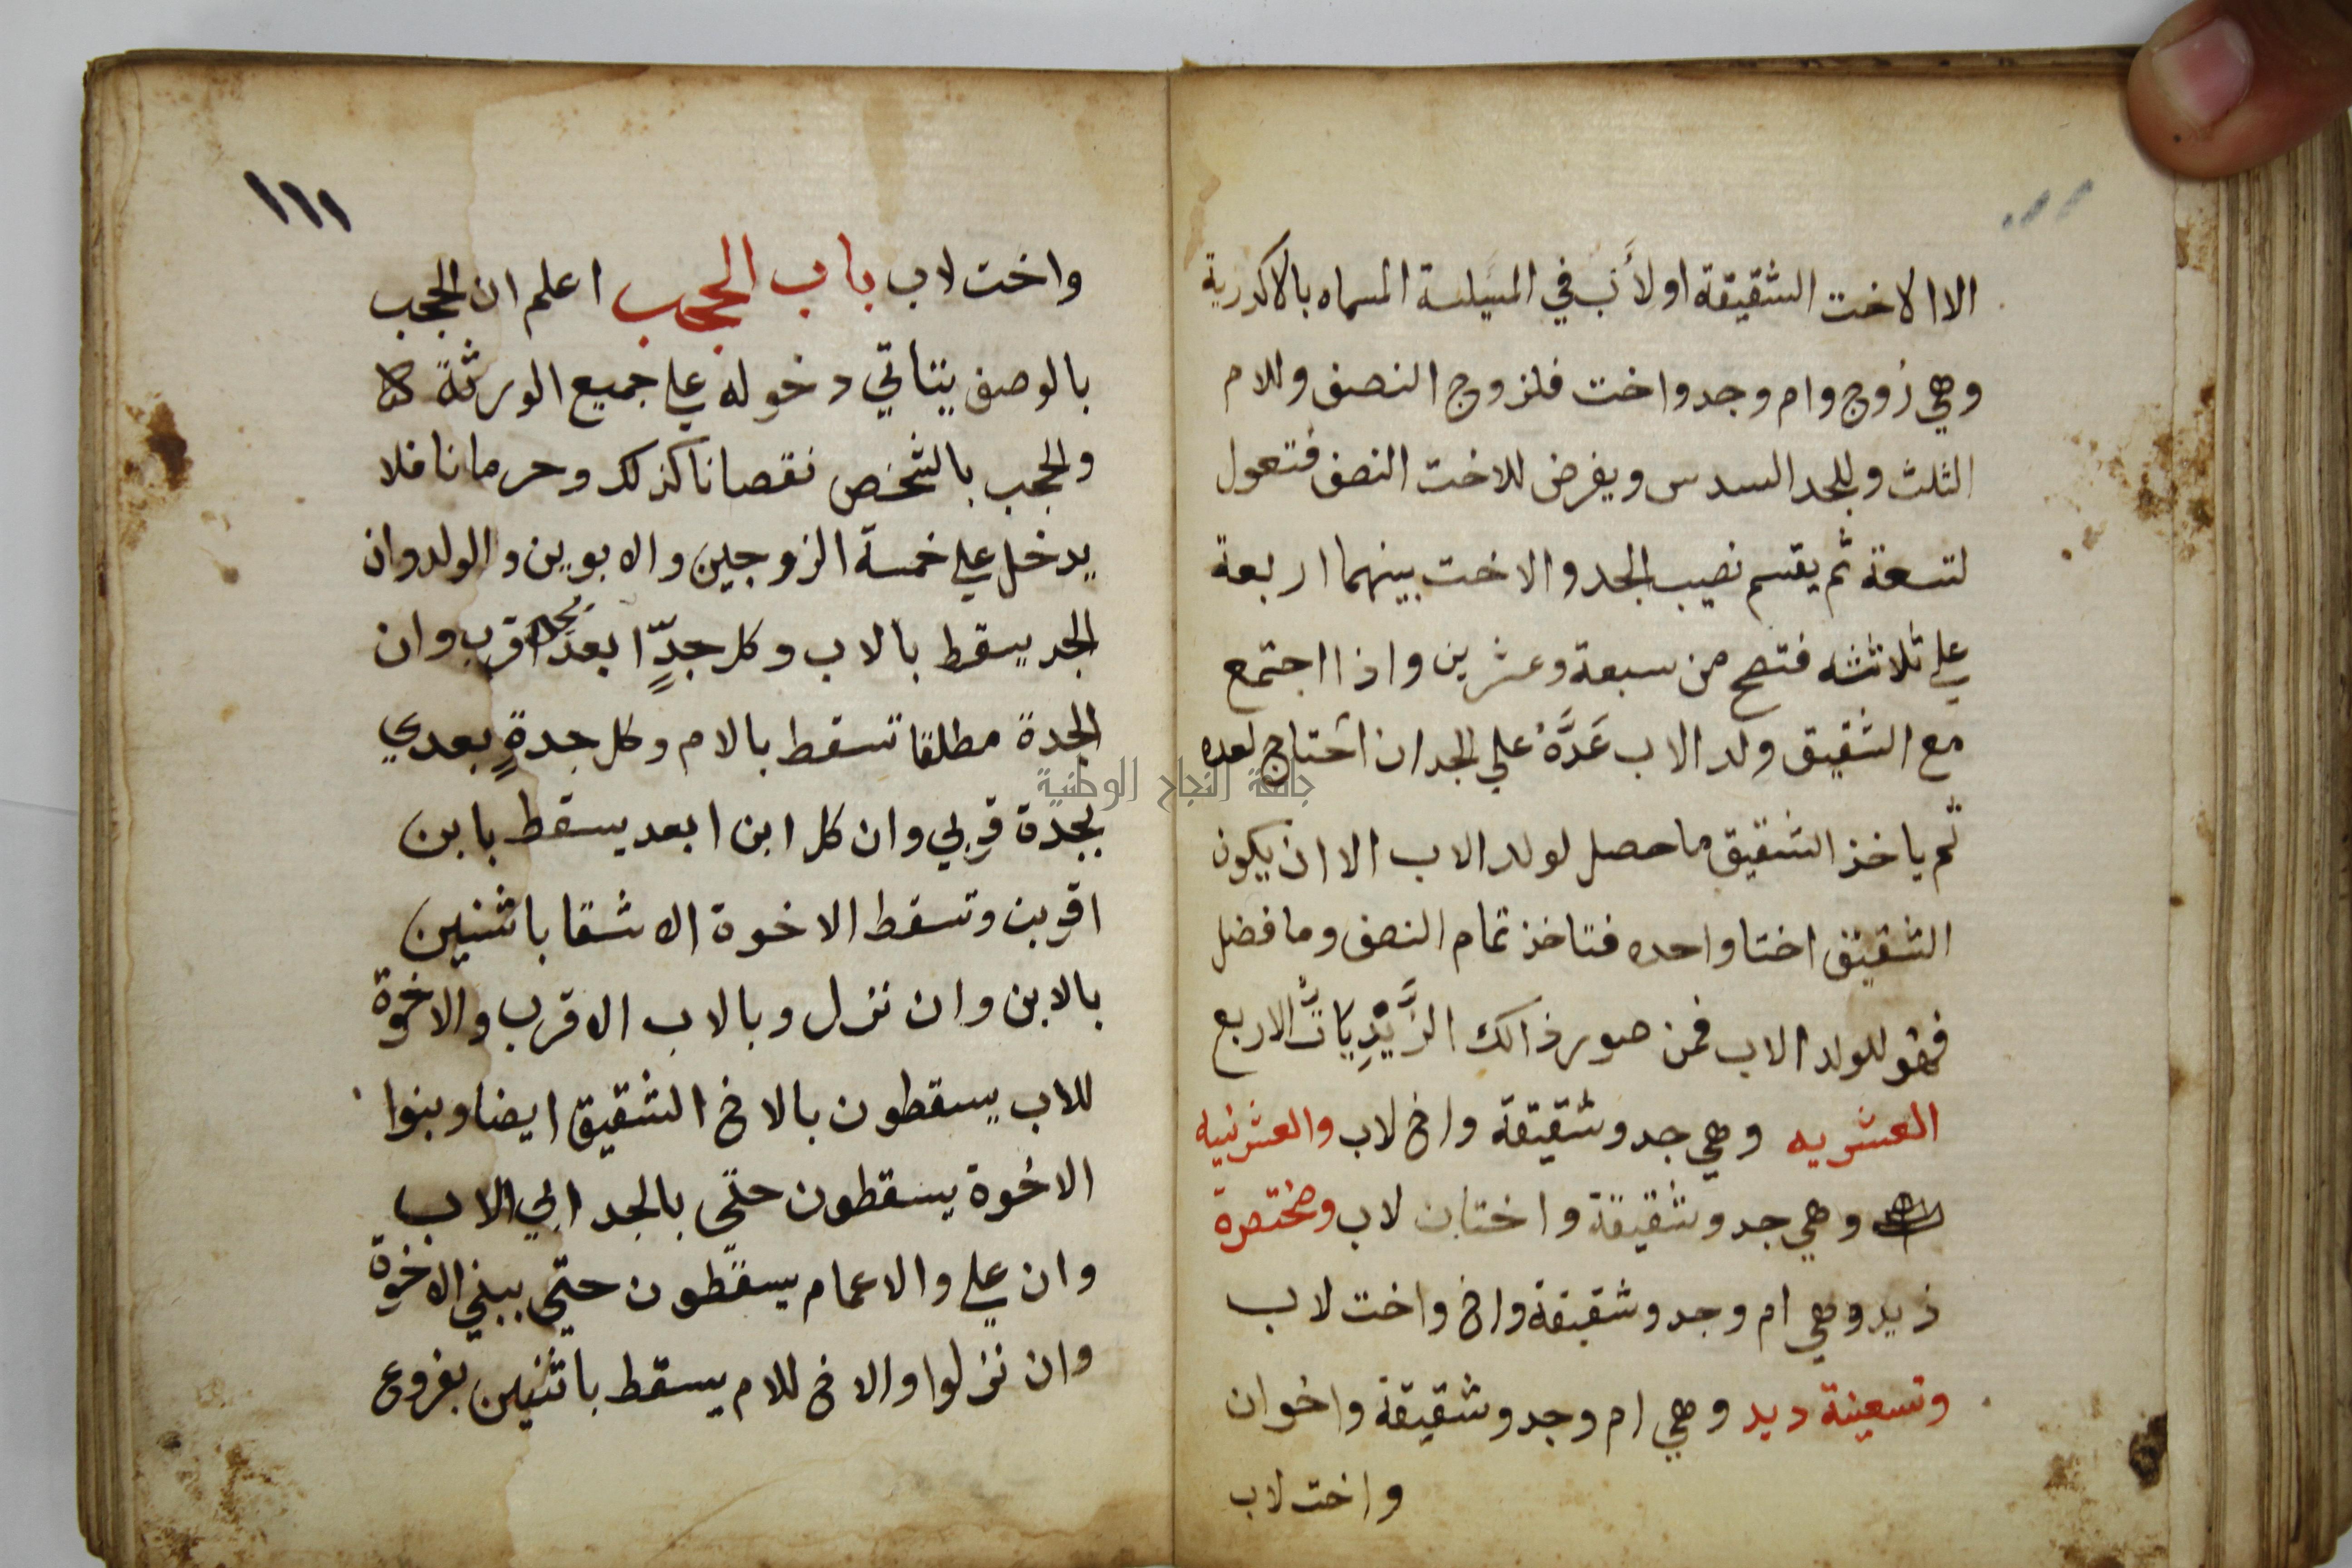 الا الاخت الشقيقة او لأب في المسيلة المسماه بالاكدرية
وهي زوج وام وجد واخت فلزوج النصف وللام
الثلث وللجد السدس ويفرض للاخت النصف فتعول
لتسعة ثم يقسم نصيب الجد والاخت بينهما اربعة
علي ثلاثثه فتصح من سبعة وعشرين واذا اجتمع
مع الشقيق ولد الاب عَدَّهُ علي الجد ان احتاج لعده
ثم ياخذ الشقيق ما حصل لولد الاب الا ان يكون
الشقيق اختا واحده فتاخذ تمام النصف وما فضل
فهو للولد الاب فمن صور ذالك الزَّيْدِيَاتُ الاربع
العشريه وهي جد وشقيقة واخ لاب والعشرنيه
وهي جد وشقيقة واختان لاب ومختصرة
زيد وهي ام وجد وشقيقة واخ واخت لاب
وتسعينة ديد وهي ام وجد وشقيقة واخوان
واخت لاب
١١١
واخت لاب باب الحجب اعلم ان الحجب
بالوصف يتاتي دخوله علي جميع الورثة
والحجب بالشخص نقصانا كذلك وحرمانا فلا
يدخل علي خمسة الزوجين والابوين والولد وان
الجد يسقط بالاب وكل جدٍّ ابعد بجد اقرب وان
الجدة مطلقا تسقط بالام وكل جدةٍ بعدي
بجدة قربي وان كل ابن ابعد يسقط بابن
اقرب وتسقط الاخوة الاشقا باثنين
بالابن وان نزل وبالاب الاقرب والاخوة
للاب يسقطون بالاخ الشقيق ايضا وبنوا
الاخوة يسقطون حتي بالجد ابي الاب
وان علي والاعمام يسقطون حتي ببني الاخوة
وان نزلوا والاخ للام يسقط باثنين بفروع
جامعة النجاح الوطنية